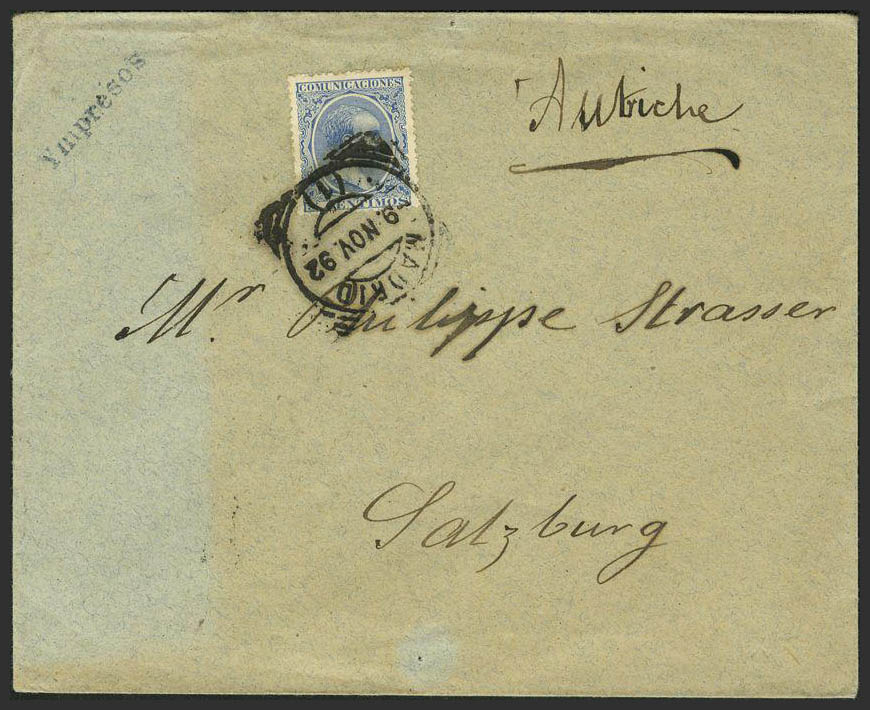 Ympresos
COMUNICACIONES
CENTIMOS
Autriche
(1)
9. NOV. 92
MADRID
Mr Philippe Strasser
Salzburg